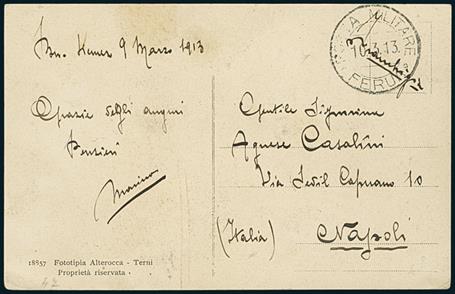 Bu. Kemez 9 Marzo 1913
Grazie degli auguri
Pensieri
Marino
18857 Fototipia Alterocca - Terni
Proprietà riservata
POSTA MILITARE
10.3.13.
FERU
Gentile Signorina
Agnese Casalini
Via Sedil Capuano 10
(Italia) Napoli